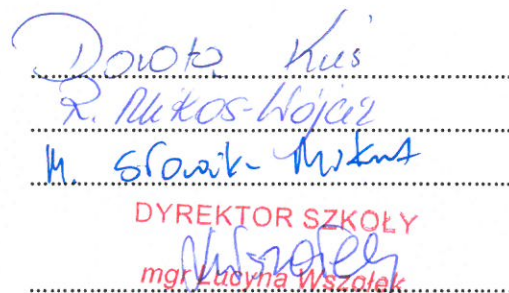 Dorota Kuś
R. Mikos-Wójcik
M. Słowik-
DYREKTOR SZKOŁY
mgr Lucyna Wszołek